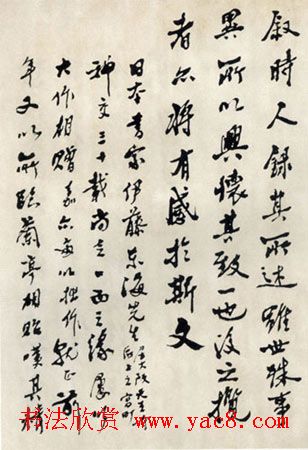 敘時人錄其所述雖世殊事
異所以興懷其致一也後之攬
者亦將有感於斯文
日本書家伊藤東海先生
神交三十載尚乏一面之緣屢以
大作相贈嘉亦每以拙作就正前
年又以所臨蘭亭相貽嘆其精
书法欣赏@书法
www.yac8.com